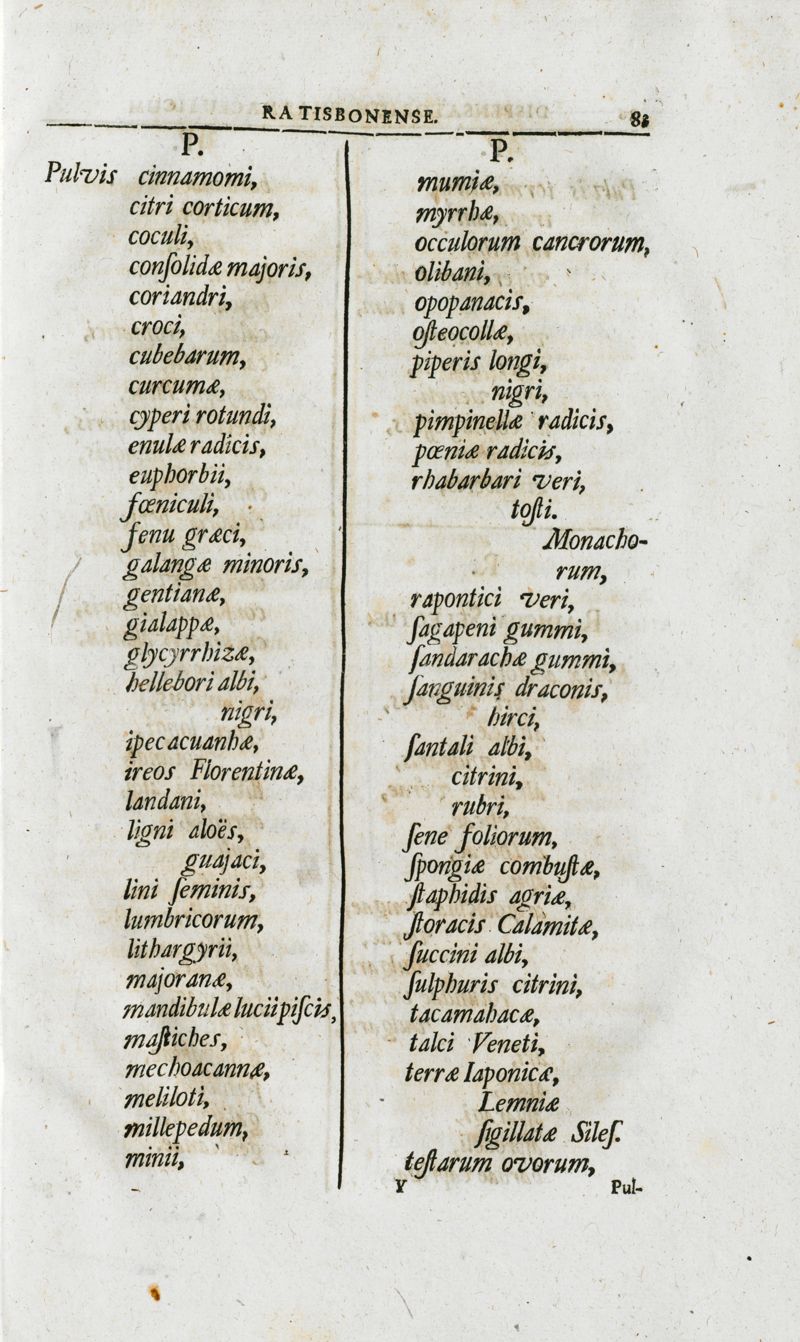 RATISBONENSE.
P.
Pulvis cinnamomi,
citri corticum,
coculi,
conſolidæ majoris,
coriandri,
croci,
cubebarum,
curcumæ,
cyperi rotundi,
enulæ radicis,
euphorbii,
fœniculi,
fenu græci,
galangæ minoris,
gentianæ,
gialappæ,
glycyrrhizæ,
hellebori albi,
nigri,
ipecacuanhæ,
ireos Florentinæ,
landani,
ligni aloës,
guajaci,
lini ſeminis,
lumbricorum,
lithargyrii,
majoranæ,
mandibulæ lucii piſcis,
maſtiches,
mechoacannæ,
meliloti,
millepedum,
minii,
P.
mumiæ,
myrrhæ,
occulorum cancrorum,
olibani,
opopanacis,
oſteocollæ,
piperis longi,
nigri,
pimpinellæ radicis,
pœniæ radicis,
rhabarbari veri,
toſti.
Monacho-
rum,
rapontici veri,
ſagapeni gummi,
ſandarachæ gummi,
ſanguinis draconis,
hirci,
ſantali albi,
citrini,
rubri,
ſene foliorum,
ſpongiæ combuſtæ,
ſtaphidis agriæ,
ſtoracis Calamitæ,
ſuccini albi,
ſulphuris citrini,
tacamahacæ,
talci Veneti,
terræ Iaponicæ,
Lemniæ
ſigillatæ Sileſ.
teſtarum ovorum,
Y Pul-